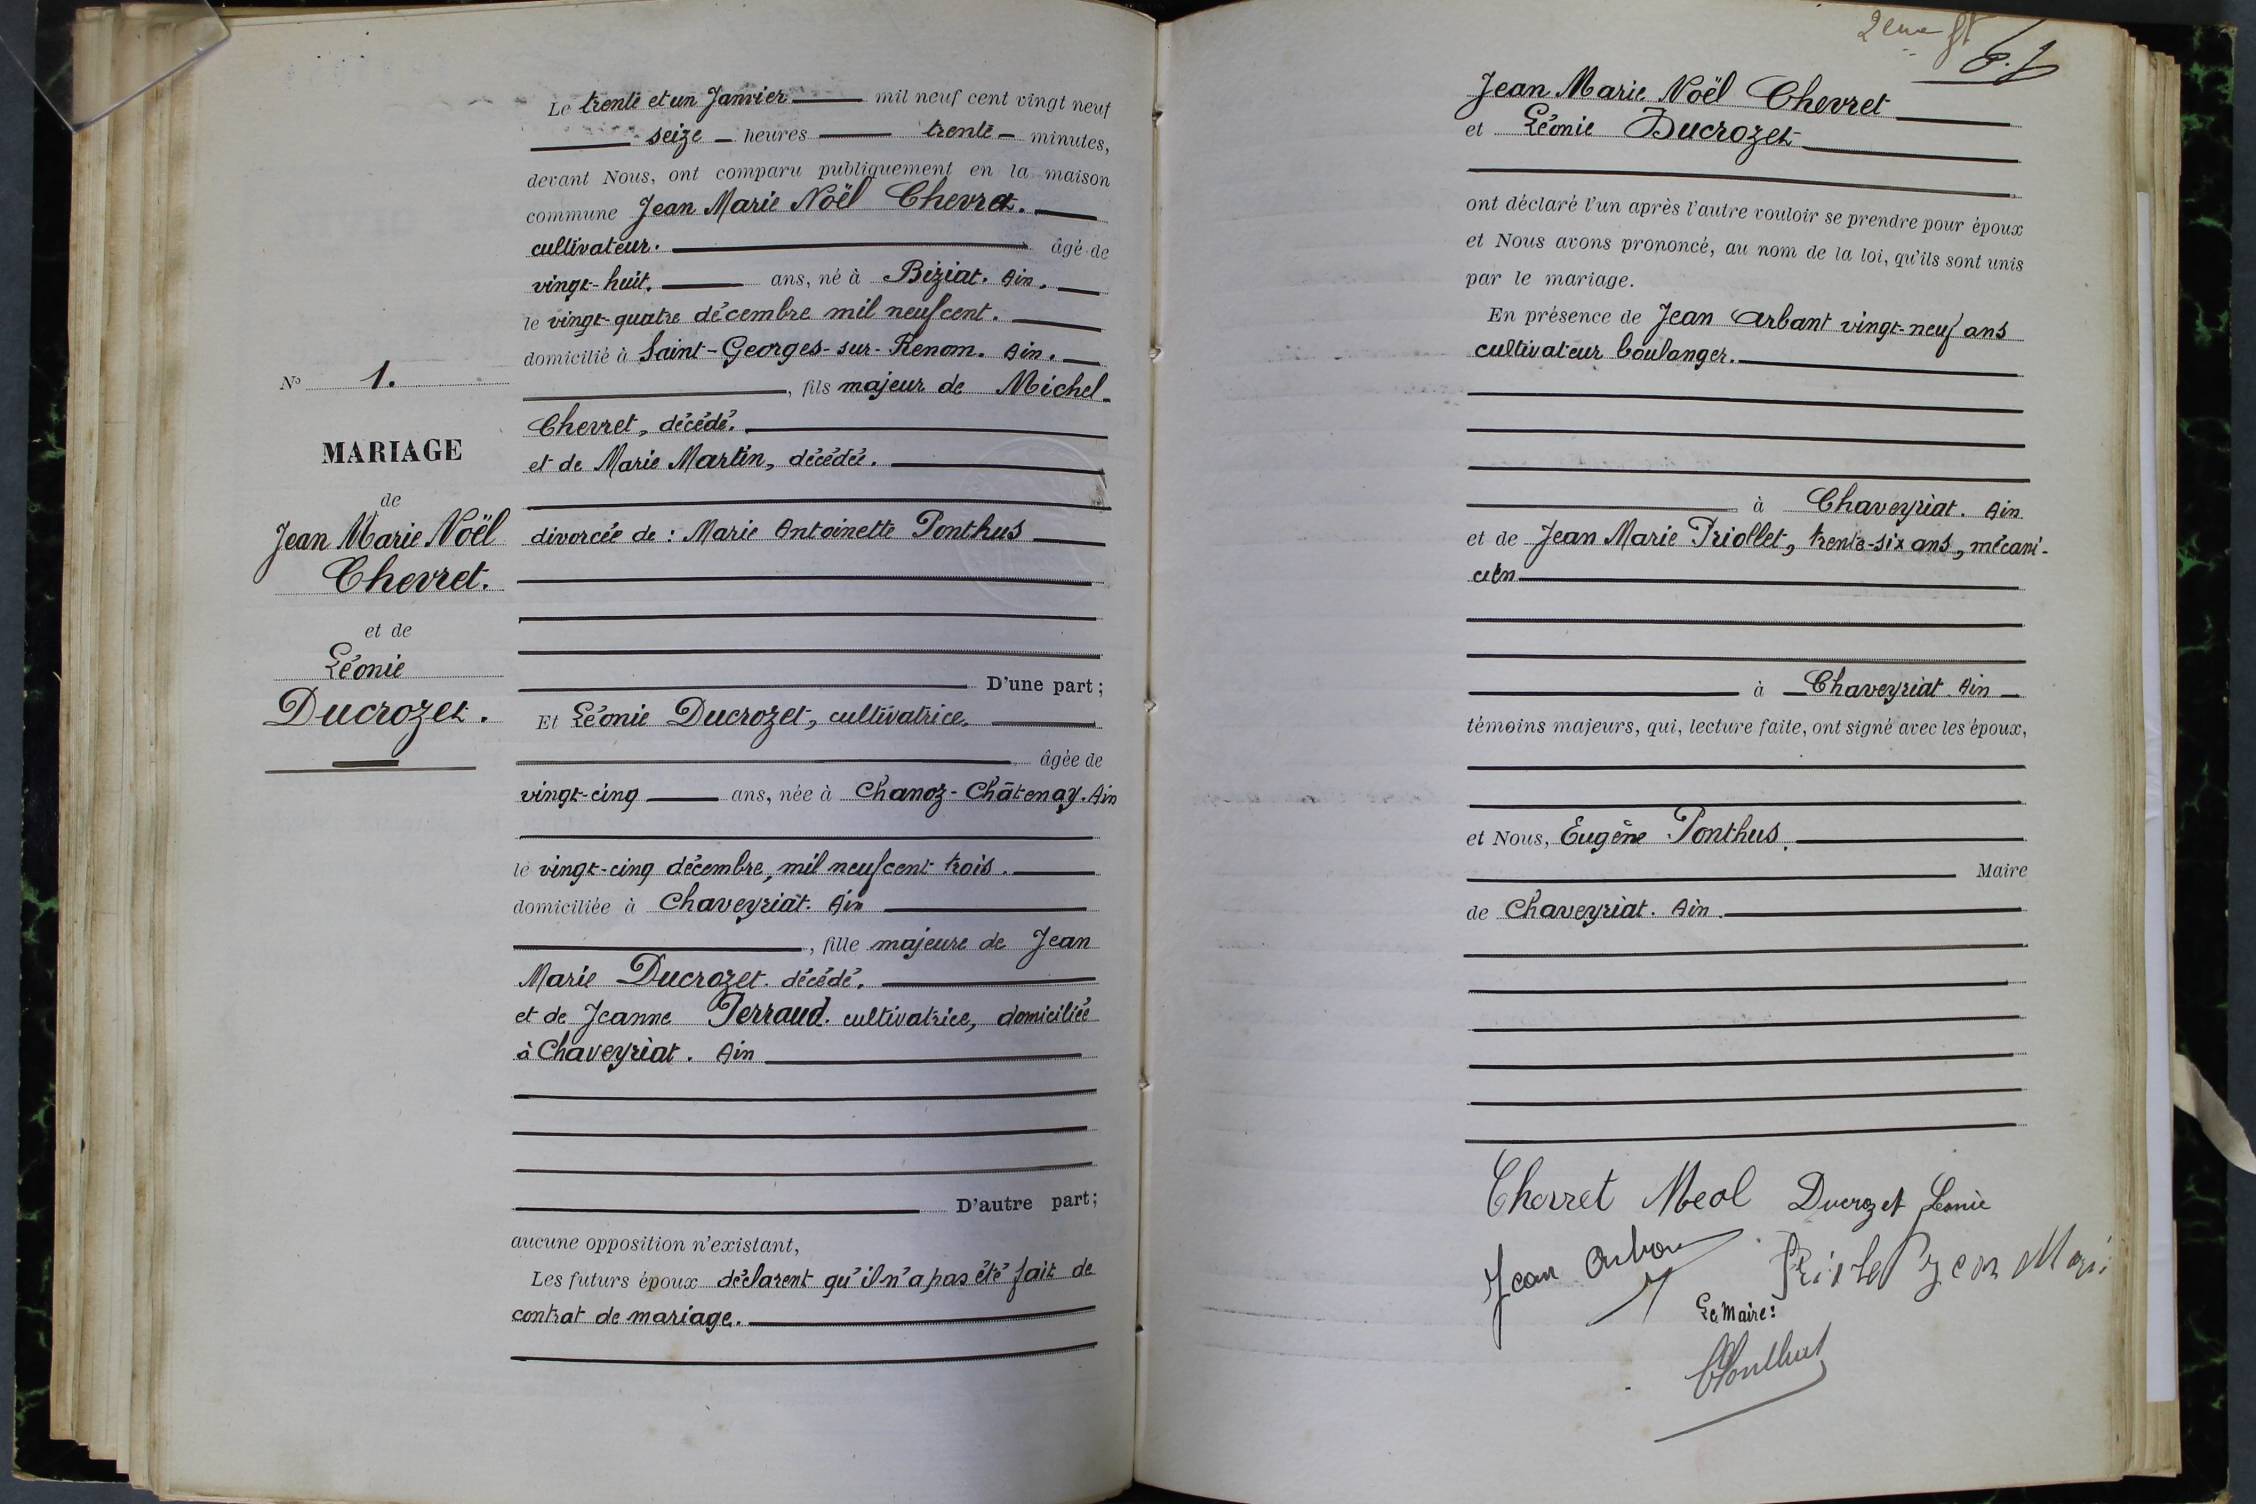 Le trente et un Janvier mil neuf cent vingt neuf
seize heures trente minutes,
devant Nous, ont comparu publiquement en la maison
commune Jean Marie Noël Chevret.
cultivateur. âgé de
vingt-huit. ans, né à Biziat. Ain.
le vingt-quatre décembre mil neuf cent.
domicilié à Saint-Georges-sur-Renom. Ain.
, fils majeur de Michel
Chevret, décédé.
et de Marie Martin, décédée.
divorcée de : Marie Antoinette Ponthus
D'une part ;
Et Léonie Ducrozet, cultivatrice.
âgée de
vingt-cinq ans, née à Chanoz-Châtenay. Ain
le vingt-cinq décembre, mil neuf cent trois.
domiciliée à Chaveyriat. Ain
, fille majeure de Jean
Marie Ducrozet. décédé.
et de Jeanne Perraud. cultivatrice, domiciliée
à Chaveyriat. Ain
D'autre part ;
aucune opposition n'existant,
Les futurs époux déclarent qu'il n'a pas été fait de
contrat de mariage.
No 1.
MARIAGE
de
Jean Marie Noël
Chevret.
et de
Léonie
Ducrozet.
2eme ft
Jean Marie Noël Chevret
et Léonie Ducrozet
ont déclaré l'un après l'autre vouloir se prendre pour époux
et Nous avons prononcé, au nom de la loi, qu'ils sont unis
par le mariage.
En présence de Jean Arbant vingt-neuf ans
cultivateur boulanger.
à Chaveyriat. Ain
et de Jean Marie Priollet, trente-six ans, mécani-
cien
à Chaveyriat Ain
témoins majeurs, qui, lecture faite, ont signé avec les époux,
et Nous, Eugène Ponthus.
Maire
de Chaveyriat. Ain.
Chevret Meol Ducrozet Leonie
Jean
Le Maire :
EPonthus